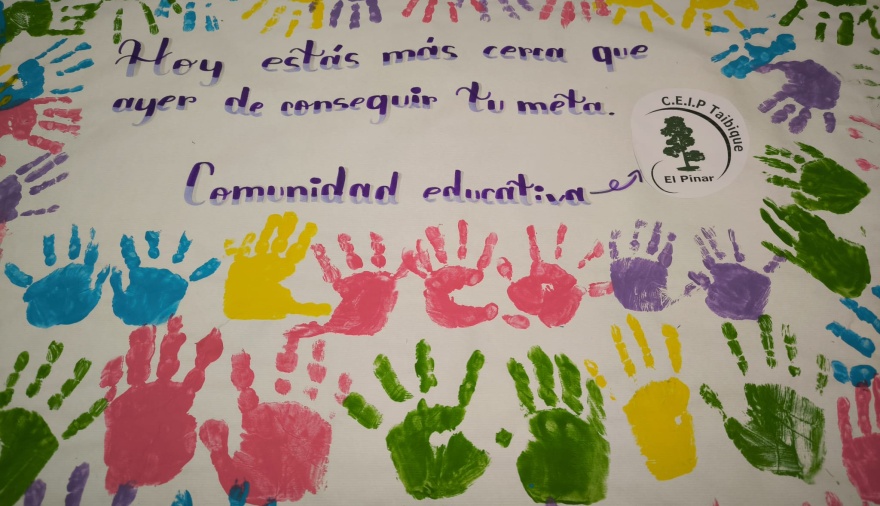 Hoy estás más cerca que
ayer de conseguir tu meta.
Comunidad educativa
C.E.I.P Taibique
El Pinar